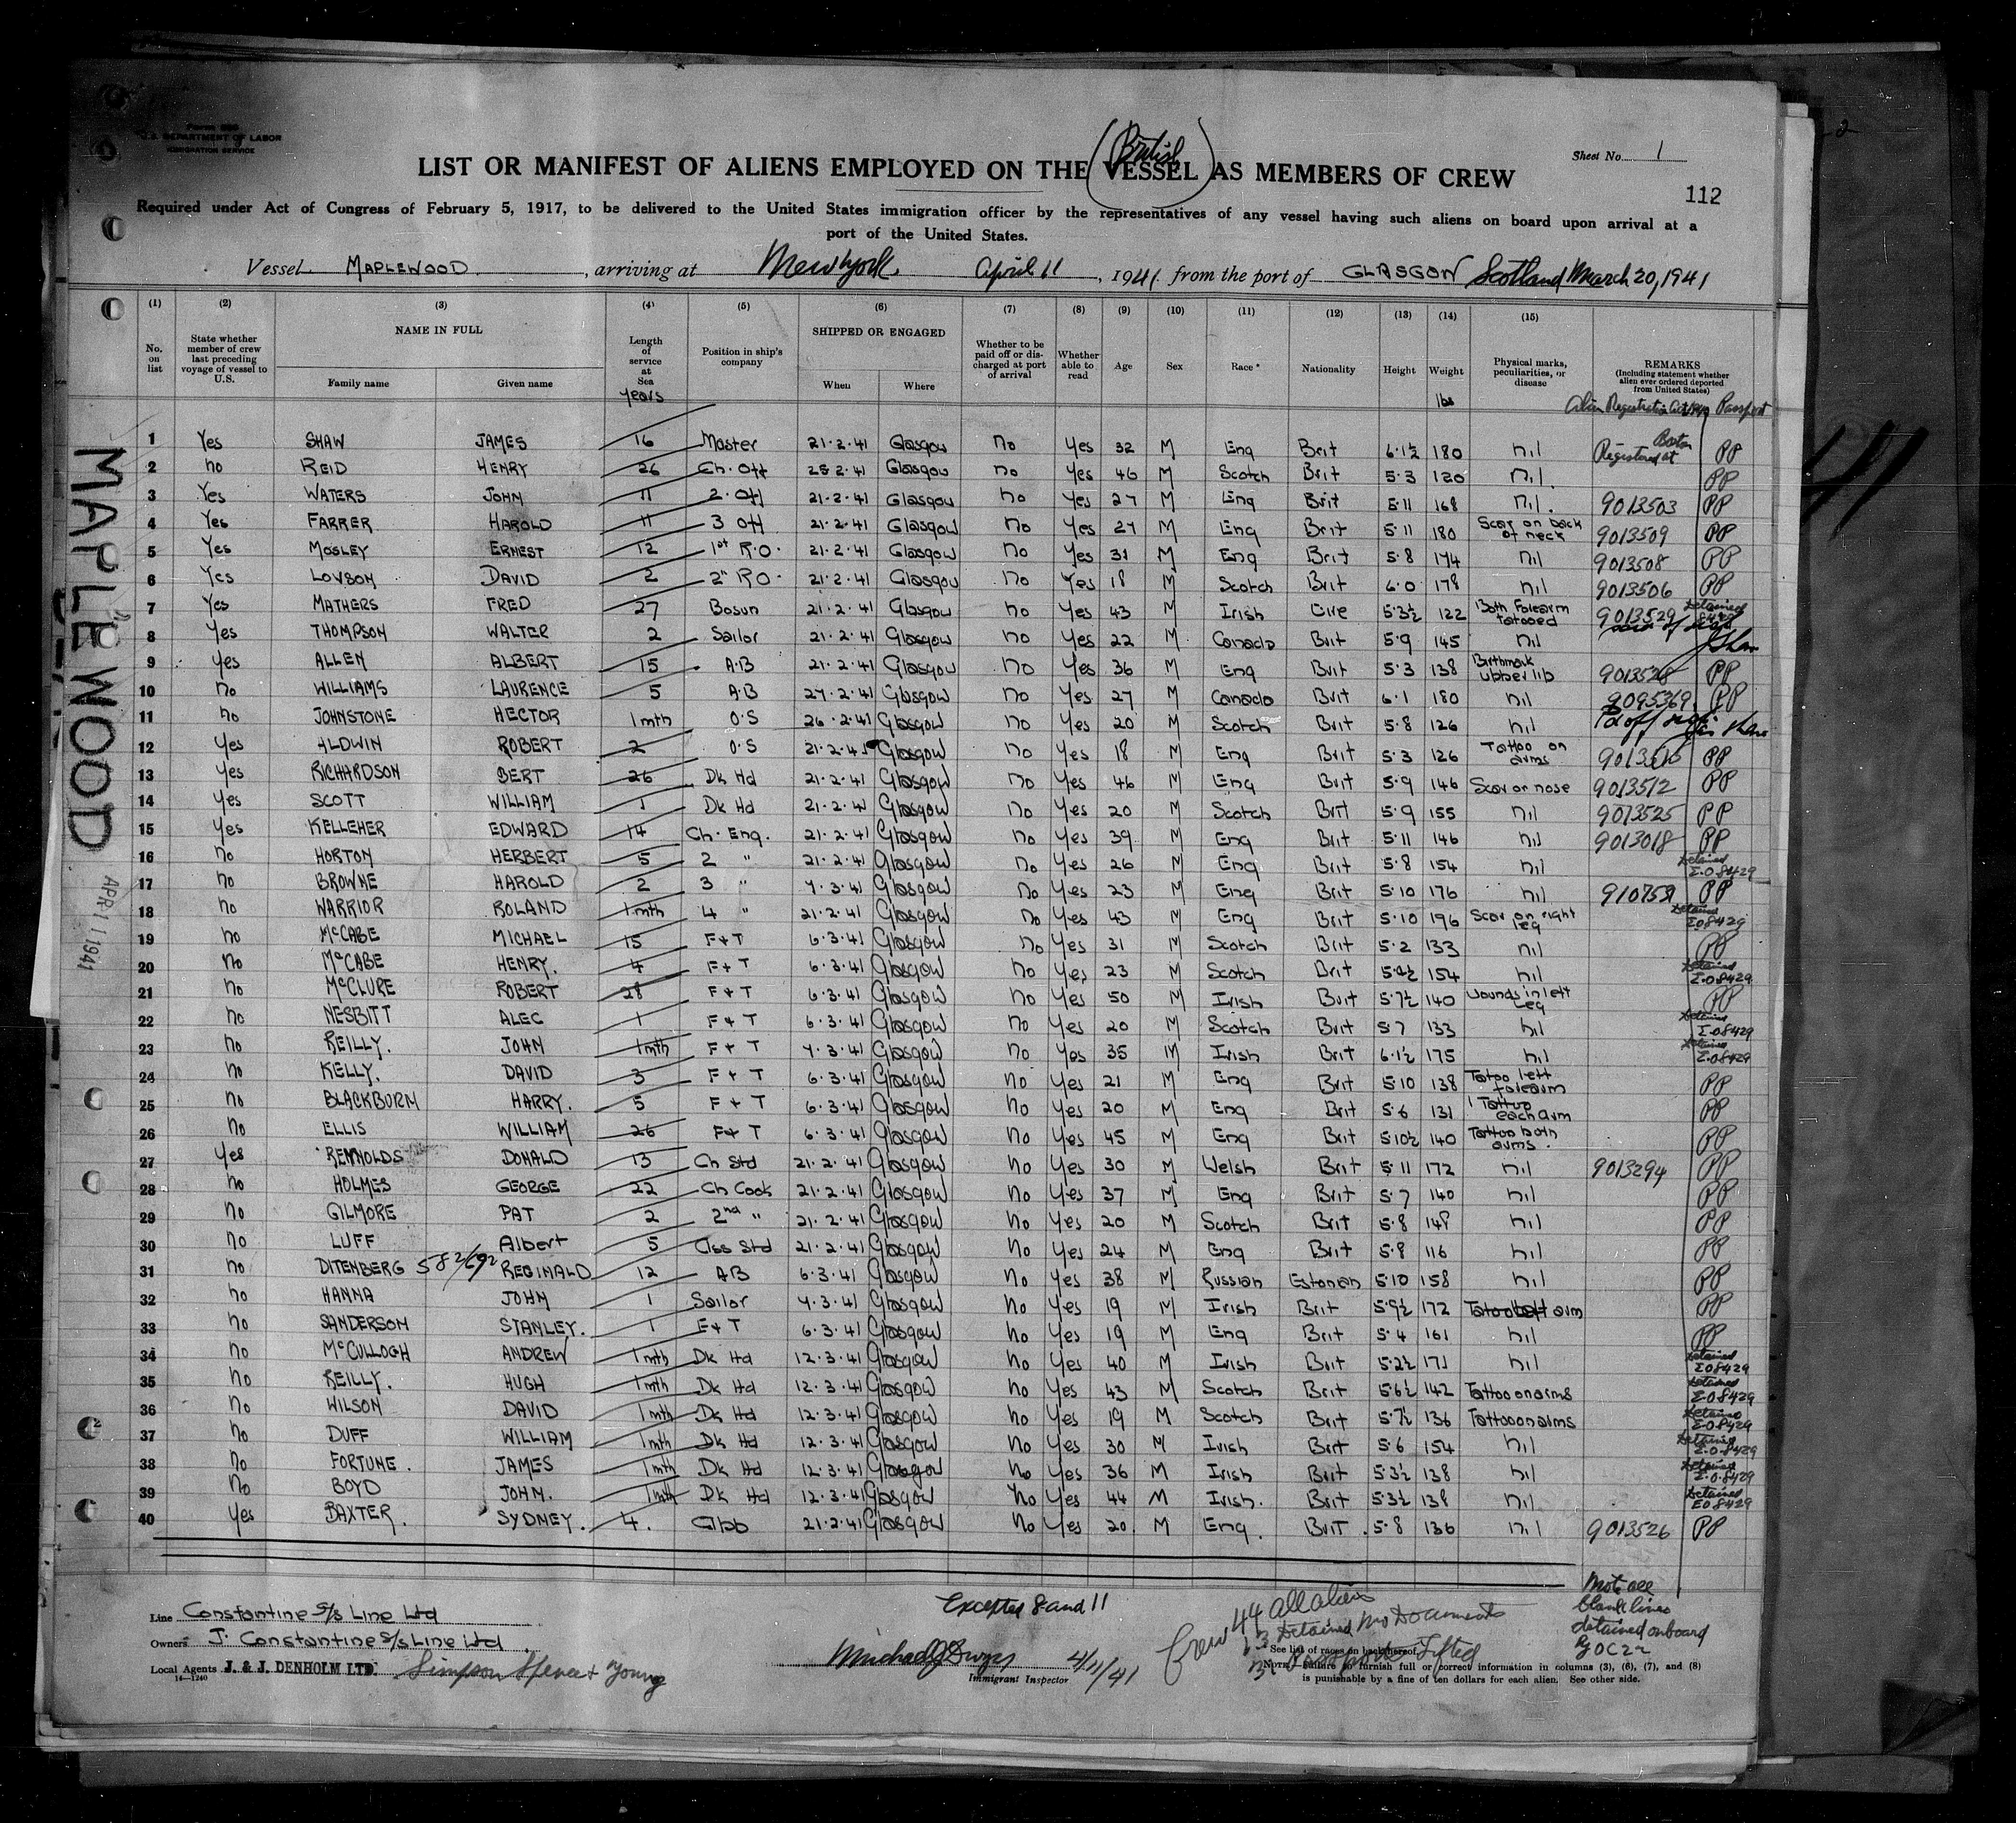 Form 680
U.S. DEPARTMENT OF LABOR
IMMIGRATION SERVICE
Sheet No. 1
(British)
LIST OR MANIFEST OF ALIENS EMPLOYED ON THE VESSEL AS MEMBERS OF CREW
112
Required under Act of Congress of February 5, 1917, to be delivered to the United States immigration officer by the representatives of any vessel having such aliens on board upon arrival at a
port of the United States.
Vessel MAPLEWOOD, arriving at New York, April 11, 1941, from the port of GLASGOW Scotland March 20, 1941
(1) (2) (3) (4) (5) (6) (7) (8) (9) (10) (11) (12) (13) (14) (15)
No. on list
State whether member of crew last preceding voyage of vessel to U.S.
NAME IN FULL
Family name Given name
Length of service at Sea years
Position in ship's company
SHIPPED OR ENGAGED
When Where
Whether to be paid off or discharged at port of arrival
Whether able to read
Age
Sex
Race*
Nationality
Height
Weight lbs
Physical marks, peculiarities, or disease
REMARKS
(Including statement whether alien ever ordered deported from United States)
Alien Registration Passport
1 Yes SHAW JAMES 16 Master 21·2·41 Glasgow No Yes 32 M Eng Brit 6·1½ 180 nil Registered at Boston PP
2 no REID HENRY 26 Ch. Off 25 2·41 Glasgow no Yes 46 M Scotch Brit 5·3 120 nil. PP
3 Yes WATERS JOHN 11 2·Off 21·2·41 Glasgow no Yes 27 M Eng Brit 5·11 168 nil. 9013503 PP
4 Yes FARRER HAROLD 11 3 Off 21·2·41 Glasgow no Yes 27 M Eng Brit 5·11 180 Scar on back of neck 9013509 PP
5 Yes MOSLEY ERNEST 12 1st R.O. 21·2·41 Glasgow no Yes 31 M Eng Brit 5·8 174 nil 9013508 PP
6 Yes LOVSON DAVID 2 2" R.O. 21·2·41 Glasgow no Yes 18 M Scotch Brit 6·0 178 nil 9013506 PP
7 Yes MATHERS FRED 27 Bosun 21·2·41 Glasgow no Yes 43 M Irish Eire 5·3½ 122 Both Forearm tatooed 9013529 Detained
8 Yes THOMPSON WALTER 2 Sailor 21·2·41 Glasgow no Yes 22 M Canada Brit 5·9 145 nil JShaw
9 Yes ALLEN ALBERT 15 A·B 21·2·41 Glasgow no Yes 36 M Eng Brit 5·3 138 Birthmark upper lip 9013528 PP
10 no WILLIAMS LAURENCE 5 A·B 27·2·41 Glasgow no Yes 27 M Canada Brit 6·1 180 nil 9095369 PP
11 no JOHNSTONE HECTOR 1mth O·S 26·2·41 Glasgow no Yes 20 M Scotch Brit 5·8 126 nil Pd off
12 Yes ALDWIN ROBERT 2 O·S 21·2·41 Glasgow no Yes 18 M Eng Brit 5·3 126 Tattoo on arms PP
13 Yes RICHARDSON BERT 26 Dk Hd 21·2·41 Glasgow no Yes 46 M Eng Brit 5·9 146 Scar on nose 9013512 PP
14 Yes SCOTT WILLIAM 1 Dk Hd 21·2·41 Glasgow no Yes 20 M Scotch Brit 5·9 155 nil 9013525 PP
15 Yes KELLEHER EDWARD 14 Ch. Eng. 21·2·41 Glasgow no Yes 39 M Eng Brit 5·11 146 nil 9013018 PP
16 no HORTON HERBERT 5 2 " 21·2·41 Glasgow no Yes 26 M Eng Brit 5·8 154 nil Detained E.O 8429
17 no BROWNE HAROLD 2 3 " 4·3·41 Glasgow no Yes 23 M Eng Brit 5·10 176 nil 910752 PP
18 no WARRIOR ROLAND 1mth 4 " 21·2·41 Glasgow no Yes 43 M Eng Brit 5·10 196 Scar on right leg Detained E.O 8429
19 no McCABE MICHAEL 15 F+T 6·3·41 Glasgow no Yes 31 M Scotch Brit 5·2 133 nil PP
20 no McCABE HENRY. 4 F+T 6·3·41 Glasgow no Yes 23 M Scotch Brit 5·4½ 154 nil Detained E.O 8429
21 no McCLURE ROBERT 28 F+T 6·3·41 Glasgow no Yes 50 M Irish Brit 5·7½ 140 wounds in left leg PP
22 no NESBITT ALEC 1 F+T 6·3·41 Glasgow no Yes 20 M Scotch Brit 5·7 133 nil Detained E.O 8429
23 no REILLY. JOHN 1mth F+T 4·3·41 Glasgow no Yes 35 M Irish Brit 6·1½ 175 nil Detained E.O 8429
24 no KELLY. DAVID 3 F+T 6·3·41 Glasgow no Yes 21 M Eng Brit 5·10 138 Tatoo left forearm PP
25 no BLACKBURN HARRY. 5 F+T 6·3·41 Glasgow no Yes 20 M Eng Brit 5·6 131 1 Tattoo each arm PP
26 no ELLIS WILLIAM 26 F+T 6·3·41 Glasgow no Yes 45 M Eng Brit 5·10½ 140 Tattoo both arms. PP
27 Yes REYNOLDS DONALD 13 Ch Std 21·2·41 Glasgow no Yes 30 M Welsh Brit 5·11 172 nil 9013294 PP
28 no HOLMES GEORGE 22 Ch Cook 21·2·41 Glasgow no Yes 37 M Eng Brit 5·7 140 nil PP
29 no GILMORE PAT 2 2nd " 21·2·41 Glasgow no Yes 20 M Scotch Brit 5·8 148 nil PP
30 no LUFF Albert 5 Ass Std 21·2·41 Glasgow no Yes 24 M Eng Brit 5·8 116 nil PP
31 no DITENBERG 582/692 REGINALD 12 AB 6·3·41 Glasgow no Yes 38 M Russian Estonian 5·10 158 nil PP
32 no HANNA JOHN 1 Sailor 4·3·41 Glasgow no Yes 19 M Irish Brit 5·9½ 172 Tatoo left arm PP
33 no SANDERSON STANLEY. 1 F+T 6·3·41 Glasgow no Yes 19 M Eng Brit 5·4 161 nil PP
34 no McCULLOGH ANDREW 1mth Dk Hd 12·3·41 Glasgow no Yes 40 M Irish Brit 5·2½ 171 nil Detained E.O 8429
35 no REILLY. HUGH 1mth Dk Hd 12·3·41 Glasgow no Yes 43 M Scotch Brit 5·6½ 142 Tattoo on arms Detained E.O 8429
36 no WILSON DAVID 1mth Dk Hd 12·3·41 Glasgow no Yes 19 M Scotch Brit 5·7½ 136 Tattoo on arms Detained E.O 8429
37 no DUFF WILLIAM 1mth Dk Hd 12·3·41 Glasgow no Yes 30 M Irish Brit 5·6 154 nil Detained E.O 8429
38 no FORTUNE. JAMES 1mth Dk Hd 12·3·41 Glasgow no Yes 36 M Irish Brit 5·3½ 138 nil Detained E.O 8429
39 no BOYD JOHN. 1mth Dk Hd 12·3·41 Glasgow no Yes 44 M Irish. Brit 5·3½ 138 nil. Detained E.O 8429
40 Yes BAXTER. SYDNEY. 4. 21·2·41 Glasgow no Yes 20. M Eng. Brit. 5·8 136 nil 9013526 PP
MAPLEWOOD
APR 11 1941
Line Constantine S/s Line Ltd
Owners J. Constantine S/s Line Ltd.
Local Agents J. & J. DENHOLM LTD. Simpson Spence + Young
14—1240
Excepted 8 and 11
4/11/41
Immigrant Inspector
Crew 44 all aliens
13 Detained No Documents
Passports Lifted
Note all
blank lines
detained onboard
* See list of races on back hereof.
NOTE.—Failure to furnish full or correct information in columns (3), (6), (7), and (8)
is punishable by a fine of ten dollars for each alien. See other side.